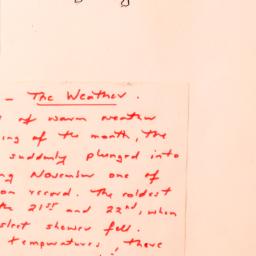 - The Weather.
of warm weather
ing of the month, the
suddenly plunged into
ng November one of
on record. The coldest
the 21st and 22nd, when
sleet shower fell.
temperatures, there